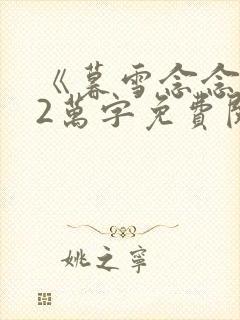 《暮雪念念
2萬字免費閱
姚之寧